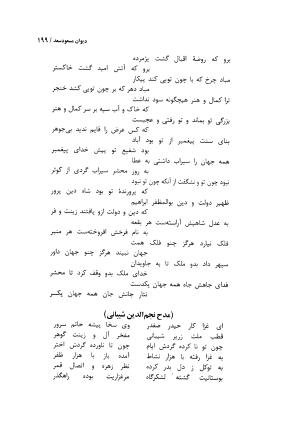 دیوان مسعودسعد / ۱۹۹
برو که روضهٔ اقبال گشت پژمرده
برو که آتش امید گشت خاکستر
مباد چرخ که با چون تویی کند پیکار
مباد دهر که بر چون تویی کشد خنجر
ترا کمال و هنر هیچگونه سود نداشت
که خاک و آب سیه بر سر کمال و هنر
بزرگی تو بماند و تو رفتی و عجبست
که کس عرض را قایم ندید بی‌جوهر
بنای سنت پیغمبر از تو بود آباد
بود شفیع تو پیش خدای پیغمبر
همه جهان را سیراب داشتی به عطا
به روز محشر سیراب گردی از کوثر
نبود چون تو و نشگفت از آنکه چون تو نبود
که پرورندهٔ تو بود شاه دین پرور
ظهیر دولت و دین بوالمظفر ابراهیم
که دین و دولت ازو یافتند زینت و فر
به عدل شاهیش آراسته‌ست هر بقعه
به نام فرخش افروخته‌ست هر منبر
فلک نیارد هرگز چنو فلک همت
جهان نبیند هرگز چنو جهان داور
سپهر داد بدو ملک تا به جاویدان
خدای ملک بدو وقف کرد تا محشر
فدای جاهش جاه همه جهان یکدست
نثار جانش جان همه جهان یکسر
(مدح نجم‌الدین شیبانی)
ای غزا کار حیدر صفدر
وی سخا پیشه حاتم سرور
قطب ملت زریر شیبانی
مفخر آل و زینت گوهر
چون تو نا کرده گردش ایام
چون تو ناورده گردش اختر
به غزا رفته با هزار نشاط
آمده باز با هزار ظفر
به توکل ز دل بدر کرده
نظر زهره و اتصال قمر
بوستانیت گشته لشکرگاه
مرغزاریت بوده راهگذر